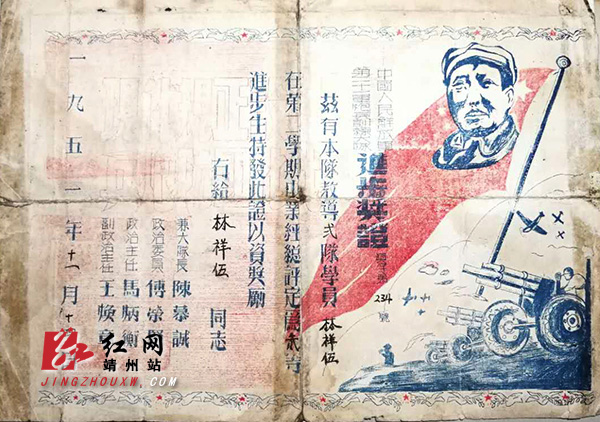 中國人民解放軍
進步獎證
字第 234 號
茲有本隊教導弍隊學員林祥伍
在第二學期中業經總評定屬弍等
進步生特發此證以資奬勵
右給 林祥伍 同志
兼大隊長 陳
政治委員 傅
政治主任 馬炳衡
副政治主任 王煥章
一九五一年十一月十
红网
靖州站
JINGZHOUXW.COM